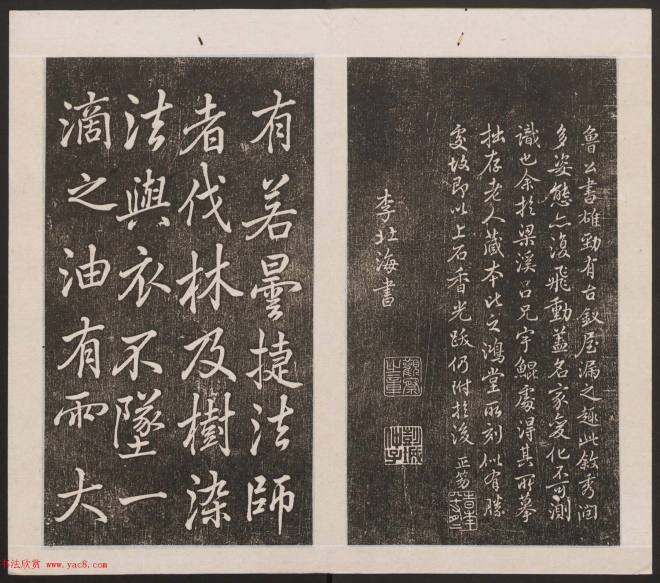 魯公書雄勁有古釵屋漏之趣此敘秀润
多姿態亦復飛動蓋名家变化不可測
識也余於梁溪吕兄宇鯤處得其所摹
拙存老人藏本比之鴻堂所刻似有勝
處故即以上石香光跋仍附於後
李北海書
有若曇捷法師
者伐林及樹染
法與衣不墜一
滴之油有兩大
书法欣赏 www.yac8.com